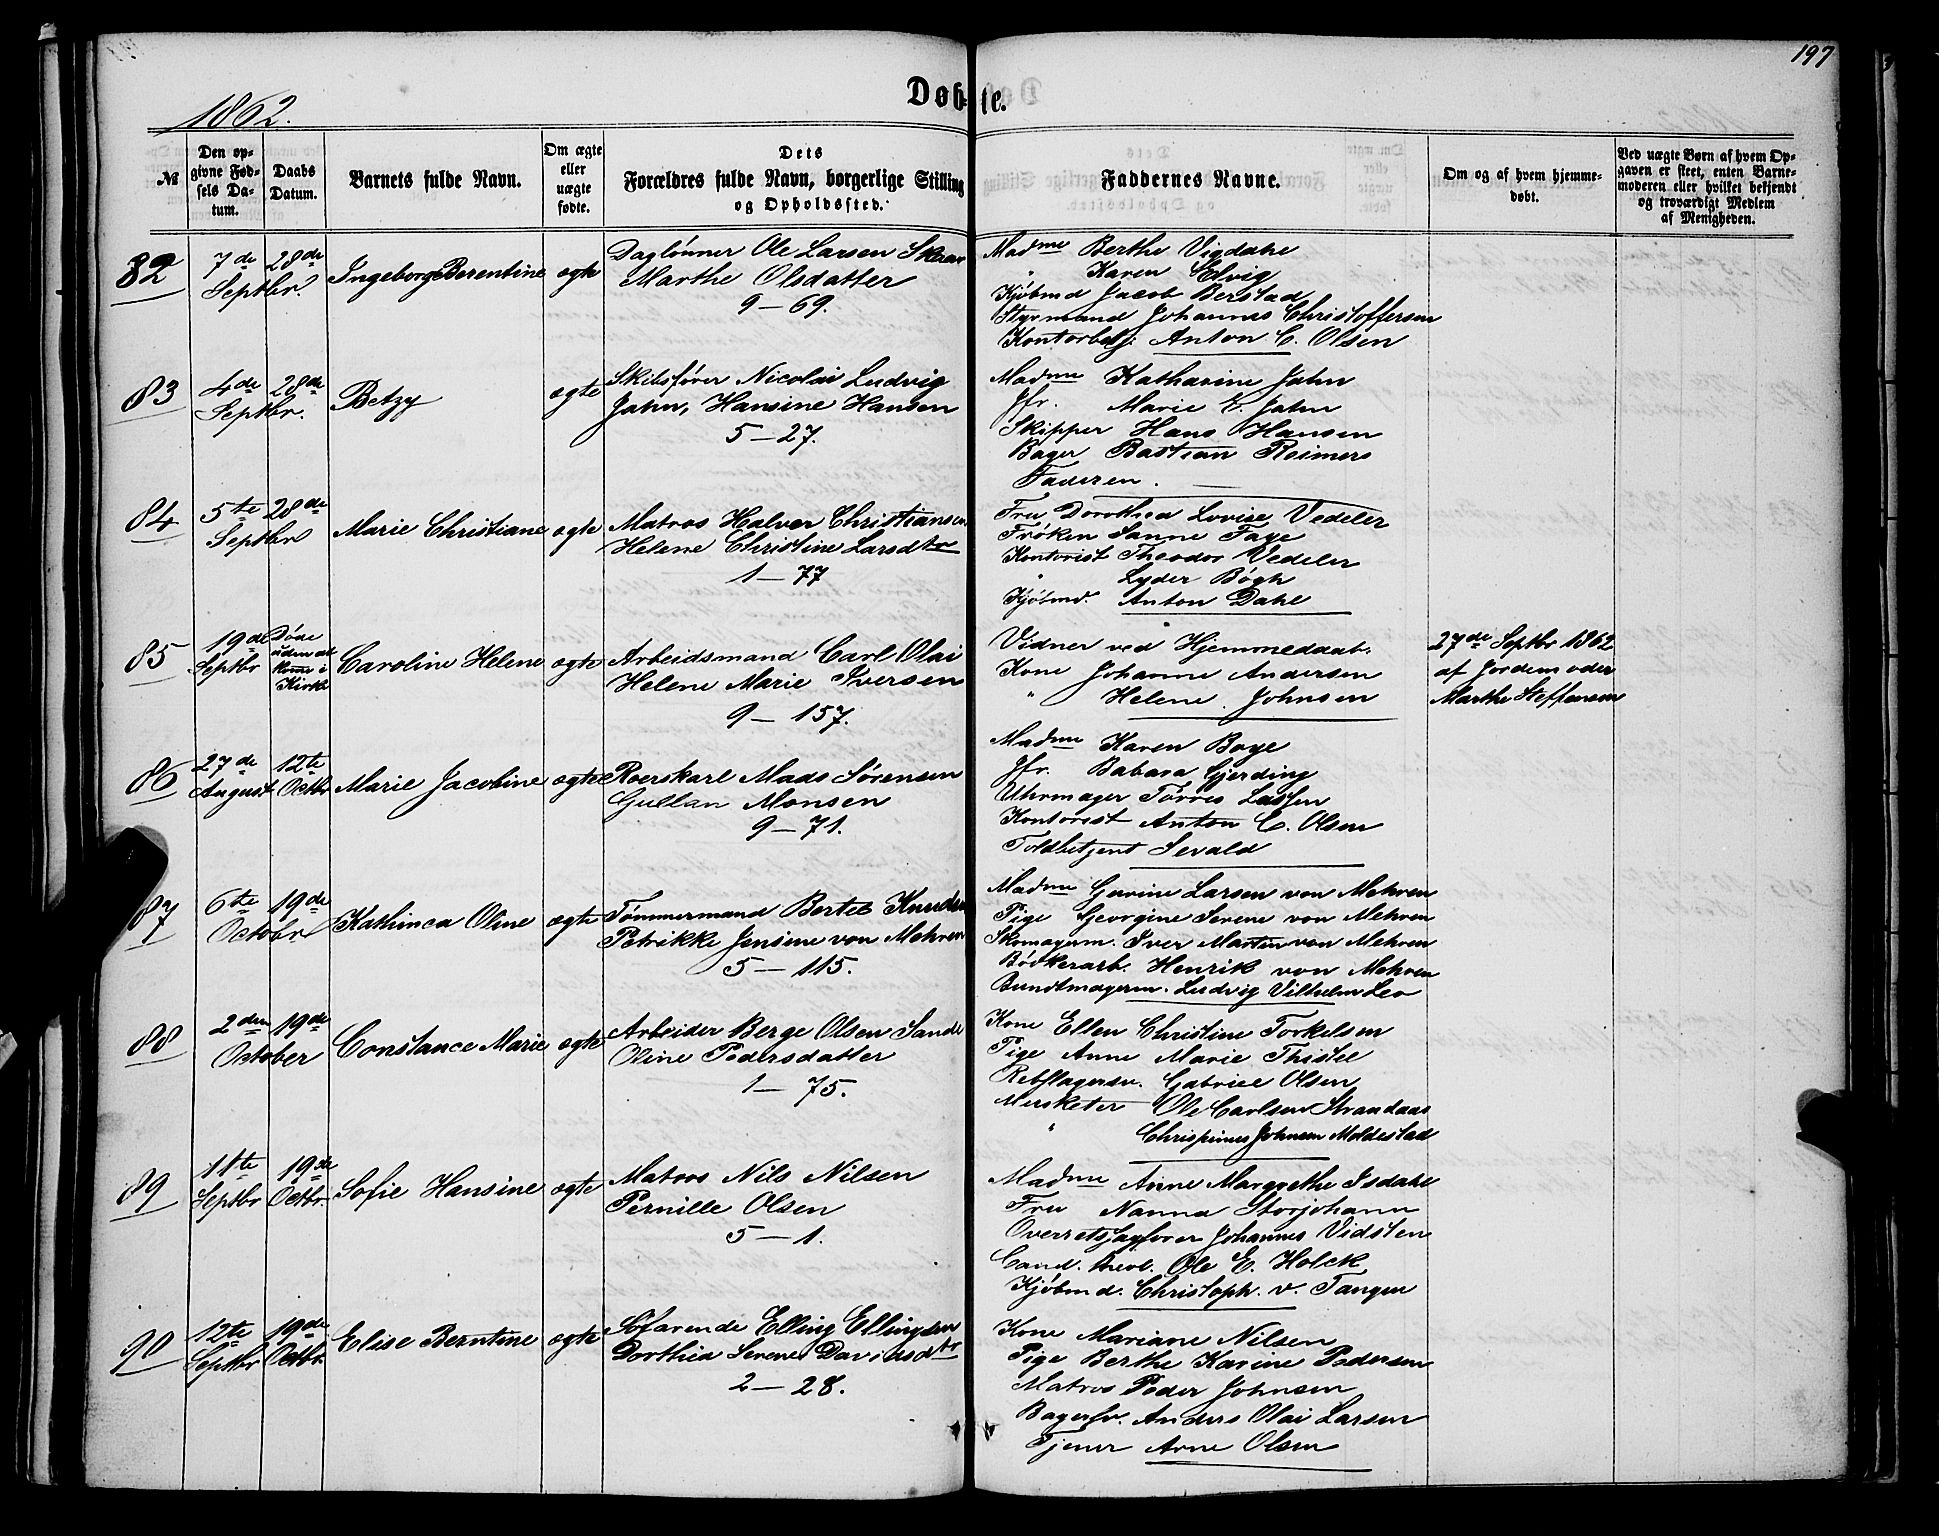 197
1862.
Døbte.
№
Den opgivne Fødsels Datum.
Daabs Datum.
Barnets fulde Navn.
Om ægte eller uægte fødte.
Dets Forældres fulde Navn, borgerlige Stilling og Opholdssted.
Faddernes Navne.
Om og af hvem hjemmedøbt.
Ved uægte Børn af hvem Opgaven er skeet, enten Barnemoderen eller hvilket bekjendt og troværdigt Medlem af Menigheden.
82
7de Septbr.
28de
Ingeborg Berentine
ægte
Daglønner Ole Larsen Skaar
Marthe Olsdatter
9 — 69.
Madme Berthe Vigdahl
" Karen Elvig
Kjøbmd Jacob Berstad
Styrmand Johannes Christoffersen
Kontorbetj. Anton C. Olsen
83
4de Septbr.
28de
Betzy
ægte
Skibsfører Nicolai Ludvig
Jahn, Hansine Hansen
5 — 27.
Madme Katharine Jahn
Jfr. Marie E. Jahn
Skipper Hans Hansen
Bager Bastian Reimers
Faderen.
84
5te Septbr
28de
Marie Christiane
ægte
Matros Halvor Christiansen
Helene Christine Larsdtr
1 — 77
Fru Dorothea Lovise Vedeler
Frøken Sanne Faye
Kontorist Theodor Vedeler
" Lyder Bøgh
Kjøbmd. Anton Dahl
85
19de Septbr
Døde uden at komme i Kirke
Caroline Helene
ægte
Arbeidsmand Carl Olai
Helene Marie Iversen
9 — 157.
Vidner ved Hjemmedaab.
Kone Johanne Andersen
" Helene Johnsen
27de Septbr 1862
af Jordemoder
Marthe Steffensen
86
27de August
12te Octbr
Marie Jacobine
ægte
Roerskarl Mads Sørensen
Gullan Monsen
9 — 71.
Madme Karen Boye
Jfr. Babara Gjerding
Uhrmager Tørres Lassen
Kontorist Anton C. Olsen
Toldbetjent Sevald
87
6te Octobr
19de
Kathinca Oline
ægte
Tømmermand Bertel Knudsen
Petrikke Jensine von Mehren
5 — 115.
Madme Gurine Larsen von Mehren
Pige Georgine Serene von Mehren
Skomagerm. Iver Martin von Mehren
Bødkerarb. Henrik von Mehren
Bundtmagerm. Ludvig Vilhelm Leo
88
2den October
19de
Constance Marie
ægte
Arbeider Berge Olsen Sande
Oline Pedersdatter
1 — 75.
Kone Ellen Christine Torkelsen
Pige Anne Marie Thistel
Rebslagersv. Gabriel Olsen
Musketer Ole Carlsen Strandaas
" Chrispinus Johnsen Moldestad
89
11te Septbr
19de Octbr.
Sofie Hansine
ægte
Matros Nils Nilsen
Pernille Olsen
5 — 1.
Madme Anne Margrethe Isdahl
Fru Nanna Storjohann
Overretssagfører Johannes Vidsten
Cand. theol. Ole E. Holck
Kjøbmd. Christoph. v. Tangen
90
12te Septbr
19de Octbr.
Elise Berntine
ægte
Søfarende Elling Ellingsen
Dorthea Serene Davidsdtr
2 — 28.
Kone Mariane Nilsen
Pige Berthe Karine Pedersen
Matros Peder Johnsen
Bagersv. Anders Olai Larsen
Tjener Arne Olsen